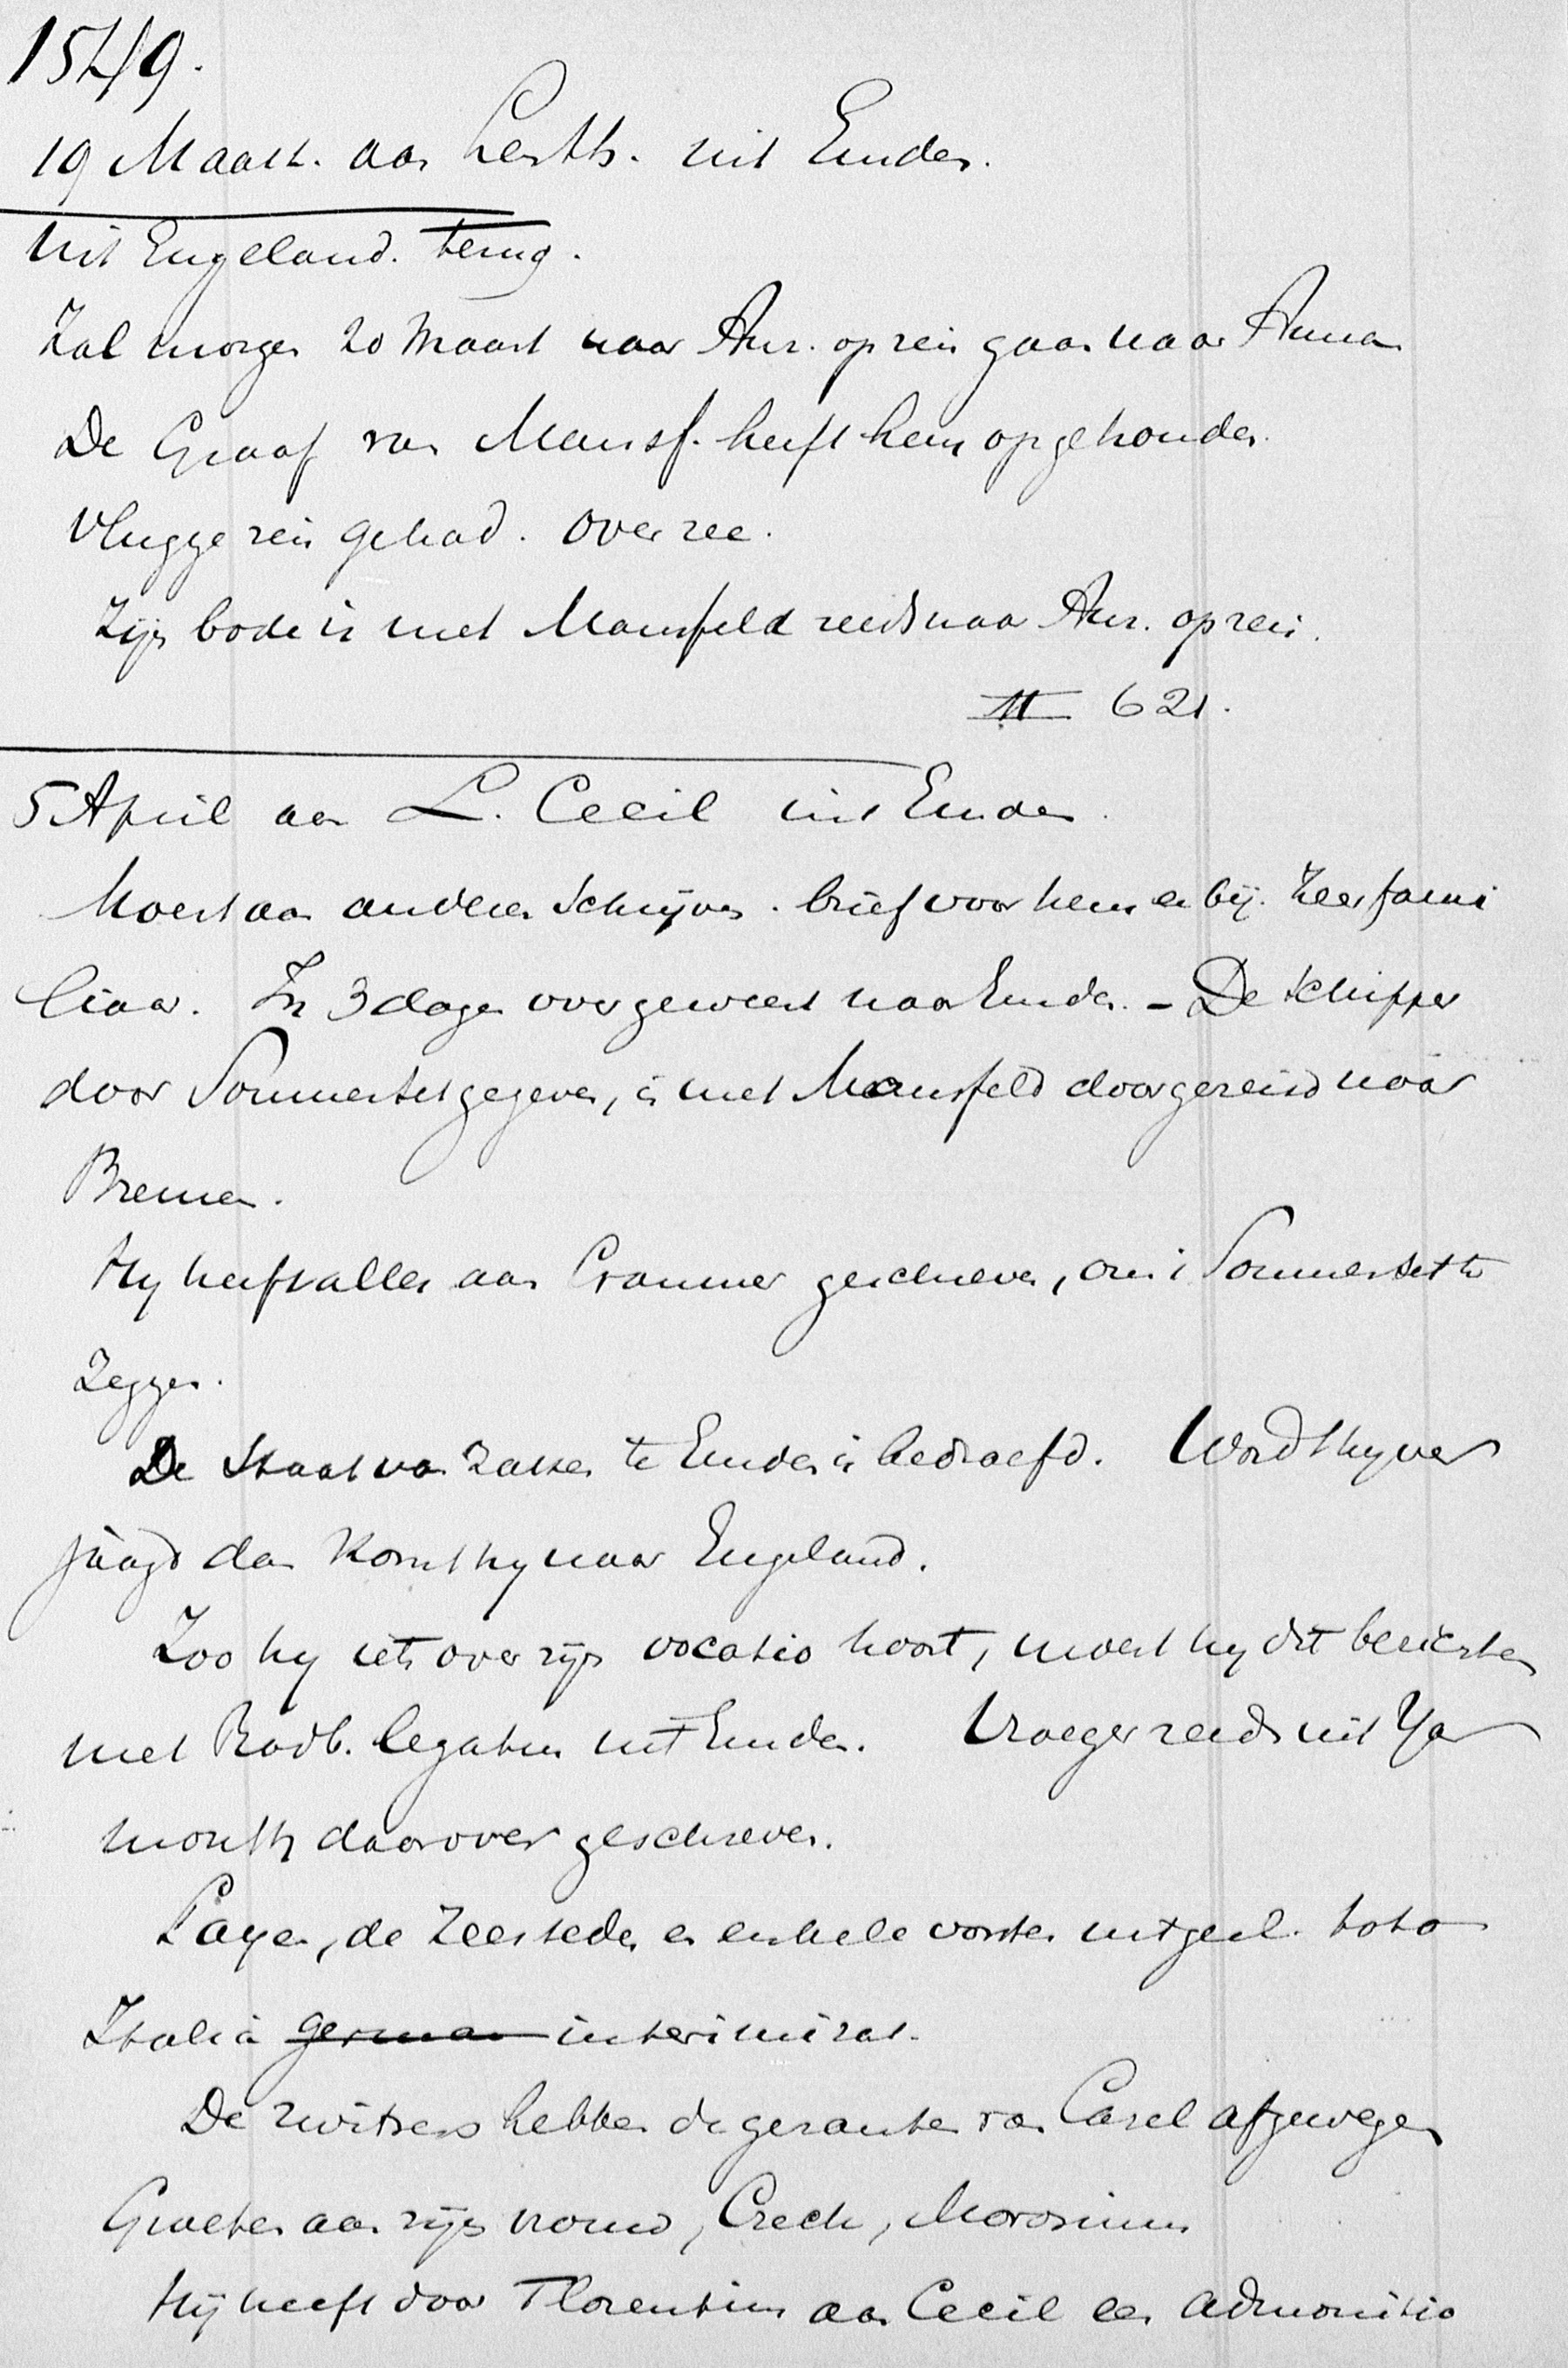 1549.
19 Maart. aan Hardb. uit Emden.
Uit Engeland. terug.
Zal morgen 20 Maart naar Aur. op reis gaan naar Anna
De Graaf van Mansf. heeft hem opgehouden.
Vlugge reis gehad. over zee.
Zijn bode is met Mansfeld reeds naar Aur. op reis.
II 621.
5 April aan L. Cecil uit Emden.
Moest aan anderen schrijven. brief voor hem er bij. Zeer fami
liaar. In 3 dagen over geweest naar Emden. - De schipper
door Sommerset gegeven, is met Mansfeld doorgereisd naar
Bremen.
Hy heeft alles aan Cranmer geschreven, om 't Sommerset te
zeggen.
De Staat van zaken te Emden is bedroefd. Wordt hy ver
jaagd dan komt hy naar Engeland.
Zoo hy iets over zijn vocatio hoort, moest hy dit berichten
met Brodb. legatum uit Emden. Vroeger reeds uit Yar
mouth daarover geschreven.
Paus, de Zeesteden en enkele vorsten uitgezl. tota
Italia german interimizat.
De Zwitsers hebben de gezanten van Carel afgewezen
Groeten aan zijn vrouw, Creck, Morosinus
Hij heeft door Florentius aan Cecil een admonitio